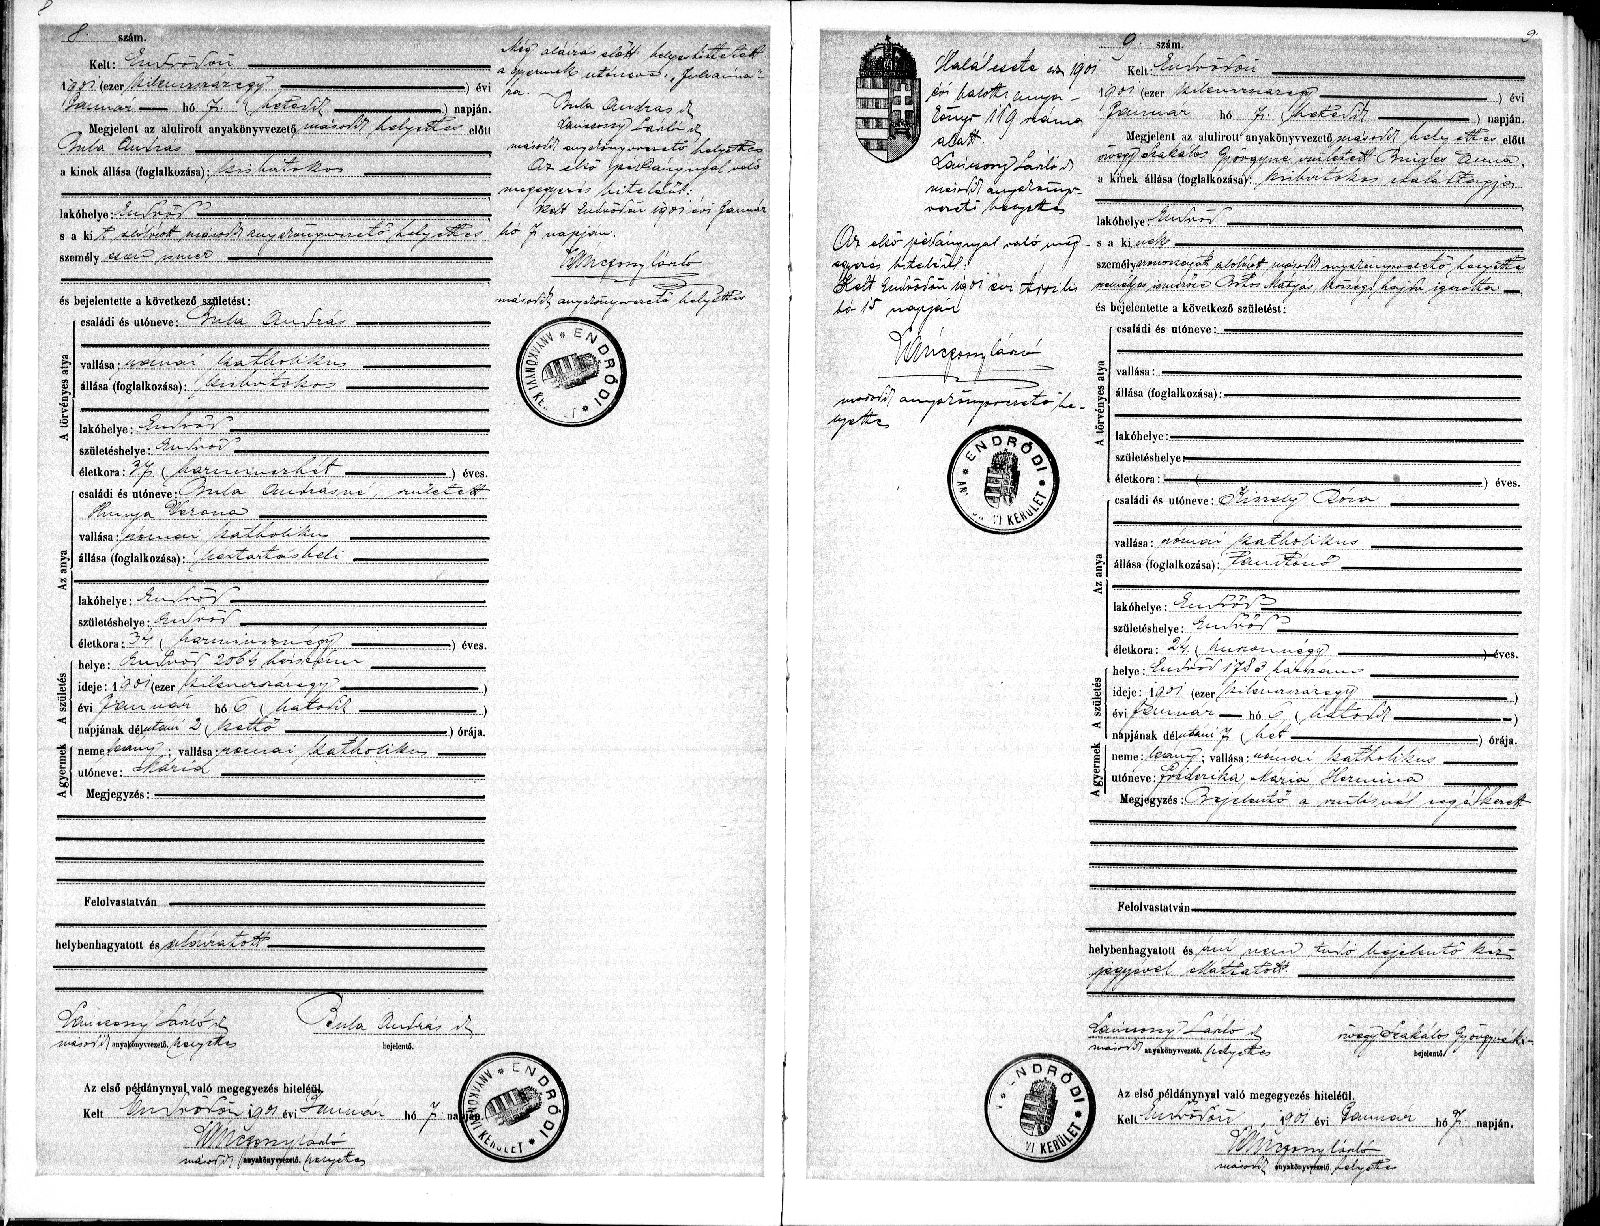 8
8. szám.
Kelt: Endrődön
1901 (ezer kilencszázegy) évi
Január hó 7. (hetedik) napján.
Megjelent az alulirott anyakönyvvezető második helyettes előtt
Bula András
a kinek állása (foglalkozása): kisbirtokos
lakóhelye: Endrőd
s a kit alulirott második anyakönyvvezető helyettes
személyesen ismer
és bejelentette a következő születést:
A törvényes atya
családi és utóneve: Bula András
vallása: római katholikus
állása (foglalkozása): kisbirtokos
lakóhelye: Endrőd
születéshelye: Endrőd
életkora: 37 (harminczhét) éves.
Az anya
családi és utóneve: Bula Andrásné, született
Hunya Verona
vallása: római katholikus
állása (foglalkozása): háztartásbeli
lakóhelye: Endrőd
születéshelye: Endrőd
életkora: 34 (harmincznégy) éves.
A születés
helye: Endrőd 2064 házszám
ideje: 1901 (ezer kilenczszázegy)
évi Január hó 6 (hatodik)
napjának délutáni 2 (kettő) órája.
A gyermek
neme: leány; vallása: római katholikus
utóneve: Mária
Megjegyzés:
Felolvastatván
helybenhagyatott és aláiratott
Lánczony László sk
második anyakönyvvezető helyettes
Bula András sk
bejelentő.
Az első példánynyal való megegyezés hiteléül.
Kelt Endrődön 1901 évi Január hó 7 napján.
Lánczony László
második anyakönyvvezető helyettes
Még aláirás előtt helyesbittetett
a gyermek utóneve: „Julianna"
ra.
Bula András sk
Lánczony László sk
második anyakönyvvezető helyettes
Az első példánynyal való
megegyezés hiteléül:
Kelt Endrődön 1901 évi Január
hó 7 napján.
Lánczony László
második anyakönyvvezető helyettes
ENDRŐDI
ANYAKÖNYVI KE
ENDRŐDI
ANYAKÖNYVI KERÜLET
9.
9. szám.
Kelt: Endrődön
1901 (ezer kilenczszázegy) évi
Január hó 7. (hetedik) napján.
Megjelent az alulirott anyakönyvvezető második helyettes előtt
özvegy Szakálos Györgyné, született Anna,
a kinek állása (foglalkozása):
lakóhelye: Endrőd
s a kinek
személyazonosságát alulirott második anyakönyvvezető helyettes
személyes ismerőse Mátyás községi igazolta
és bejelentette a következő születést:
A törvényes atya
családi és utóneve:
vallása:
állása (foglalkozása):
lakóhelye:
születéshelye:
életkora: ( ) éves.
Az anya
családi és utóneve: Róza
vallása: római katholikus
állása (foglalkozása): tanítónő
lakóhelye: Endrőd
születéshelye: Endrőd
életkora: 24 (huszonnégy) éves.
A születés
helye: Endrőd 1783 házszám
ideje: 1901 (ezer kilenczszázegy)
évi Január hó 6 (hatodik)
napjának délutáni 7 (hét) órája.
A gyermek
neme: leány; vallása: római katholikus
utóneve: Friderika Mária Hermina
Megjegyzés: Bejelentő a szülésnél segédkezett
Felolvastatván
helybenhagyatott és irni nem tudó bejelentő kéz-
jegyével ellátatott.
Lánczony László sk
második anyakönyvvezető. helyettes
özvegy Szakálos Györgyné
bejelentő
Az első példánynyal való megegyezés hiteléül.
Kelt Endrődön, 1901 évi Január hó 7 napján.
Lánczony László
második anyakönyvvezető. helyettes
Halálesete az 1901
évi halotti anya-
könyv 119 száma
alatt.
Lánczony László sk
második anyakönyv-
vezető helyettes
Az első példánynyal való meg-
egyezés hiteléül:
Kelt Endrődön 1901 évi április
hó 15 napján
Lánczony László
második anyakönyvvezető he-
lyettes
ENDRŐDI
AN VI KERÜLET
ENDRŐDI
VI KERÜLET